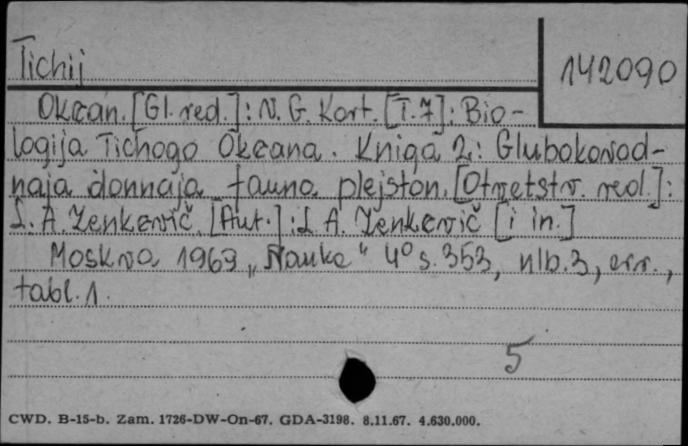 Tichij
142090
Okean. [Gl. red.]: N. G. Kort. [T. 7]: Bio-
logija Tichogo Okeana. Kniga 2: Glubokovod-
naja donnaja fauna plejston. [Otvetstv. red.]:
L. A. Zenkevič. [Aut.]: L. A. Zenkevič [i in.]
Moskva 1969 "Nauka" 4⁰ s. 353, nlb. 3, err.,
tabl. 1.
5
CWD. B-15-b. Zam. 1726-DW-On-67. GDA-3198. 8.11.67. 4.630.000.